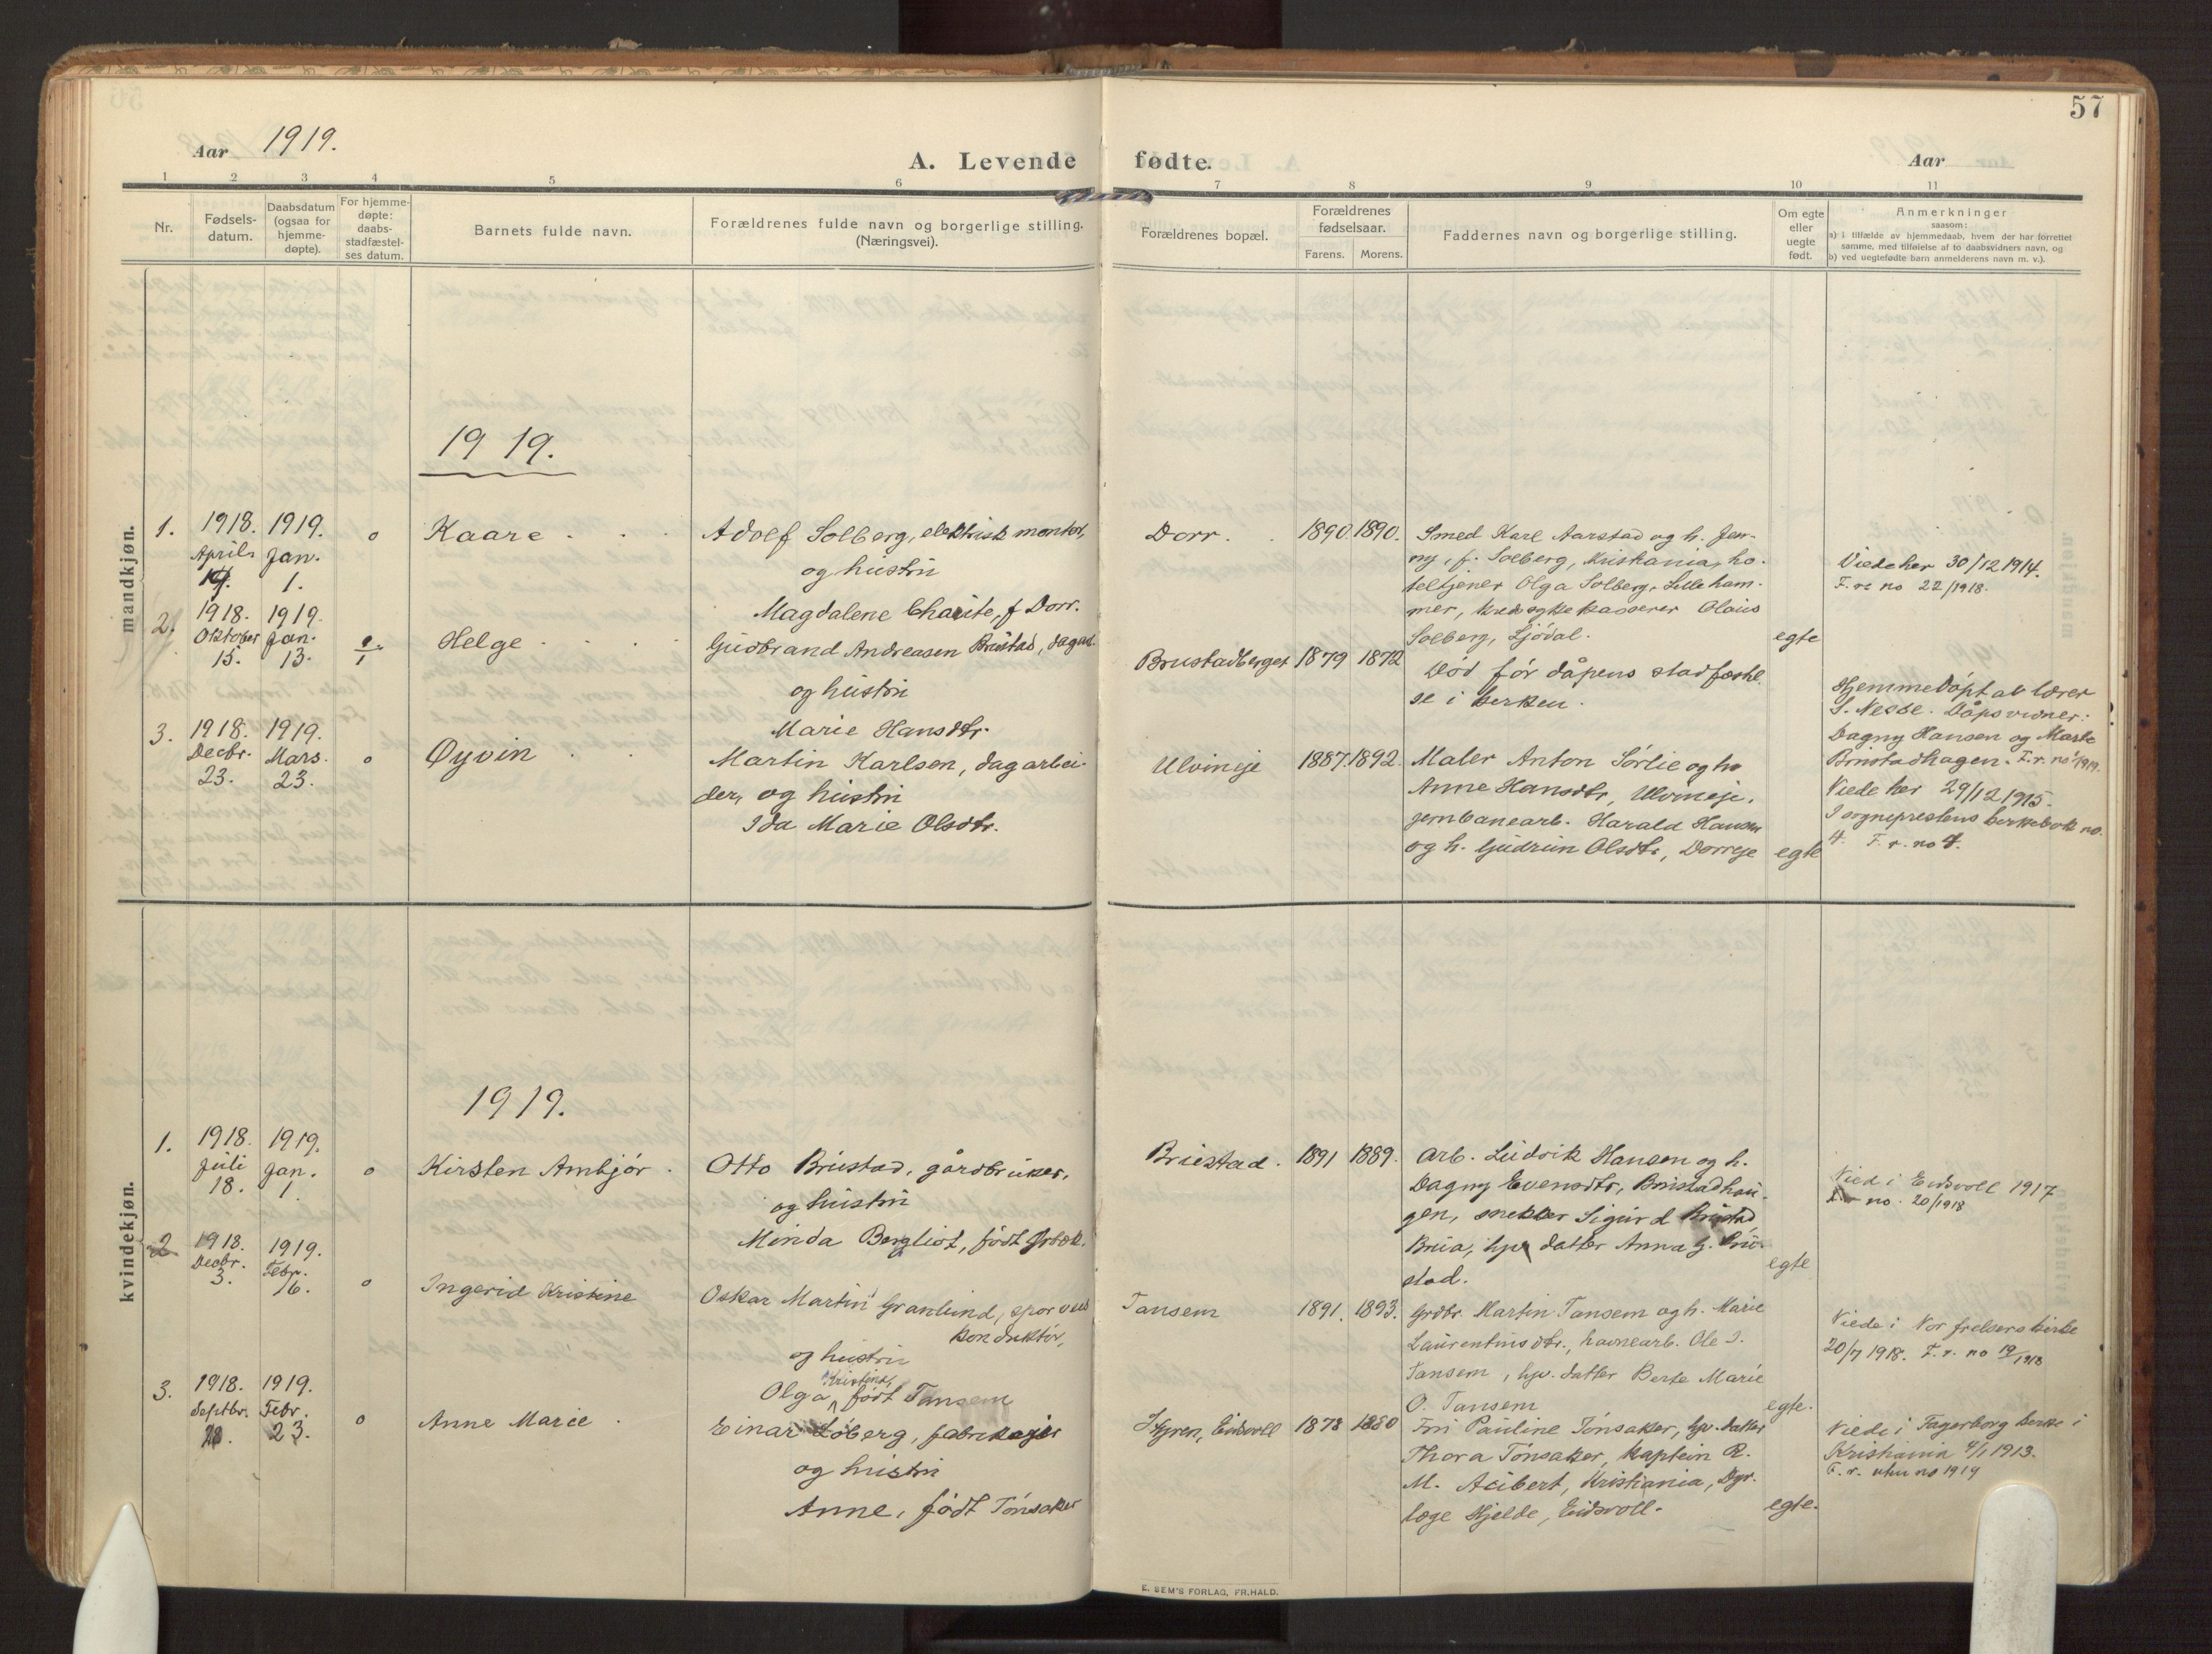 57
Aar 1919.
A. Levende fødte.
Aar
1 2 3 4 5 6 7 8 9 10 11
Nr.
Fødsels-
datum.
Daabsdatum
(ogsaa for
hjemme-
døpte).
For hjemme-
døpte:
daabs-
stadfæstel-
ses datum.
Barnets fulde navn.
Forældrenes fulde navn og borgerlige stilling.
(Næringsvei).
Forældrenes bopæl.
Forældrenes
fødselsaar.
Farens. Morens.
Faddernes navn og borgerlige stilling.
Om egte
eller
uegte
født.
Anmerkninger
saasom:
a) i tilfælde av hjemmedaab, hvem der har forrettet
samme, med tilføielse af to daabsvidners navn, og
b) ved uegtefødte barn anmelderens navn m. v.).
mandkjøn.
1919.
1.
1918.
April
1919.
Jan.
1.
o
Kaare
Adolf Solberg, elektrisk montør,
og hustru
Magdalene Charite, f Dorr.
Dorr.
1890. 1890.
Smed Karl Aarstad og h. Jen-
ny, f. Solberg, Kristiania, ho-
teltjener Olga Solberg, Lilleham-
mer, kredssykekasserer Olaus
Solberg, Sjødal.
egte
Viede her 30/12 1914.
F. r. no 22/1918.
2.
1918.
Oktober
15.
1919.
Jan.
13.
Helge
Gudbrand Andreasen Brustad, dagarb.
og hustru
Marie Hansdtr.
Brustadberget
1879 1872
Død før dåpens stadfæstel-
se i kerken.
Hjemmedøpt av lærer
S. Nesse. Dåpsvidner:
Dagny Hansen og Marte
Brustadhagen. F. r. no 1/1919.
3.
1918.
Decbr.
23.
1919.
Mars.
23.
o
Øyvin
Martin Karlsen, dagarbei-
der, og hustru
Ida Marie Olsdtr.
Ulvineje
1887. 1892.
Maler Anton Sørlie og h.
Anne Hansdtr, Ulvineje,
jernbanearb. Harald Hansen
og h. Gudrun Olsdtr, Dorreje
egte
Viede her 29/12 1915.
I sogneprestens kerkebok no.
4. F. r. no 7.
kvindekjøn.
1919.
1.
1918.
Juli
18.
1919.
Jan.
1.
o
Kirsten Ambjør
Otto Brustad, gårdbruker,
og hustru
Minda Bergliot, født
Brustad.
1891 1889.
Arb. Ludvik Hansen og h.
Dagny Evensdtr, Brustadhau-
gen, snekker Sigurd Brustad,
Brua, hjv datter Anna G. Bru-
stad.
egte
Vied i Eidsvoll 1917
F. r. no. 20/1918
2
1918.
Decbr.
3.
1919.
Febr.
16.
o
Ingerid Kristine
Oskar Martin Granlund, sporveis
konduktør,
og hustru
Kristine,
Olga født Tansem
Tansem
1891. 1893.
Grdbr. Martin Tansem og h. Marie
Laurentinsdtr., havnearb. Ole I.
Tansem, hjv. datter Berte Marie
O. Tansem
egte.
Viede i Vor frelsers kirke
20/7 1918. F. r. no 19/1918
3.
1918.
Septbr.
28.
1919.
Febr.
23.
o
Anne Marie
Einar Løberg, fabrikejer
og hustru
Anne, født Tønsaker
Styren, Eidsvoll
1878 1880
Fru Pauline Tønsaker, hjv. datter
Thora Tønsaker, kaptein R.
M. Acibert, Kristiania, Dyr-
læge Hjelde, Eidsvoll.
egte.
Viede i Fagerborg kerke i
Kristiania 4/1 1913.
F. r. uten no 1919
E. SEM'S FORLAG, FR.HALD.